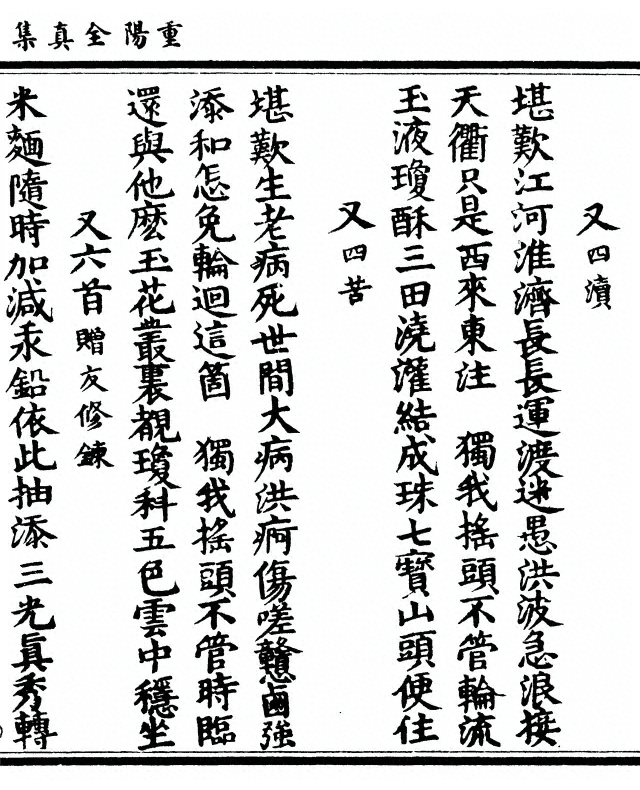 重陽全真集
又四瀆
堪歎江河淮濟長長運渡迷愚洪波急浪接
天衢只是西來東注　獨我搖頭不管輪流
玉液瓊酥三田澆灌結成珠七寶山頭便住
又四苦
堪歎生老病死世間大病洪痾傷嗟戇鹵強
添和怎免輪迴這箇　獨我搖頭不管時臨
還與他麽玉花叢裏覩瓊科五色雲中穩坐
又六首贈友修鍊
米麵隨時加減汞鉛依此抽添三光眞秀轉